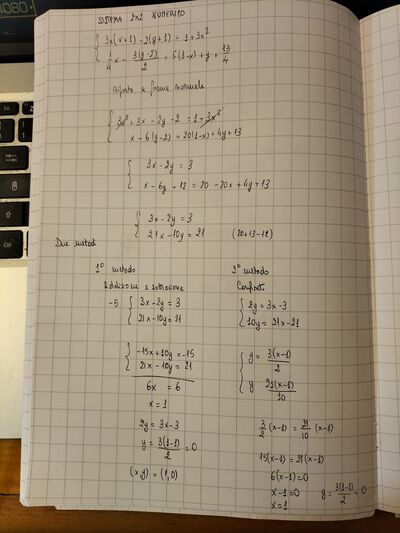 SISTEMA 2x2 NUMERICO
3x(x+1) - 2(y+1) = 1 + 3x²
1/4 x - 3(y-2)/2 = 5(1-x) + y + 13/4
riporto a forma normale
3x² + 3x - 2y - 2 = 1 + 3x²
x + 6(y-2) = 20(1-x) + 4y + 13
3x - 2y = 3
x - 6y + 12 = 20 - 20x + 4y + 13
3x - 2y = 3
21x - 10y = 21 (20+13-12)
Due metodi
1° metodo
Addizione e sottrazione
-5 3x - 2y = 3
21x - 10y = 21
-15x + 10y = -15
21x - 10y = 21
6x = 6
x = 1
2y = 3x - 3
y = 3(1-1)/2 = 0
(x,y) = (1,0)
2° metodo
Confronto
2y = 3x - 3
10y = 21x - 21
y = 3(x-1)/2
y 21(x-1)/10
3/2 (x-1) = 21/10 (x-1)
15(x-1) = 21(x-1)
6(x-1) = 0
x - 1 = 0 y = 3(1-1)/2 = 0
x = 1